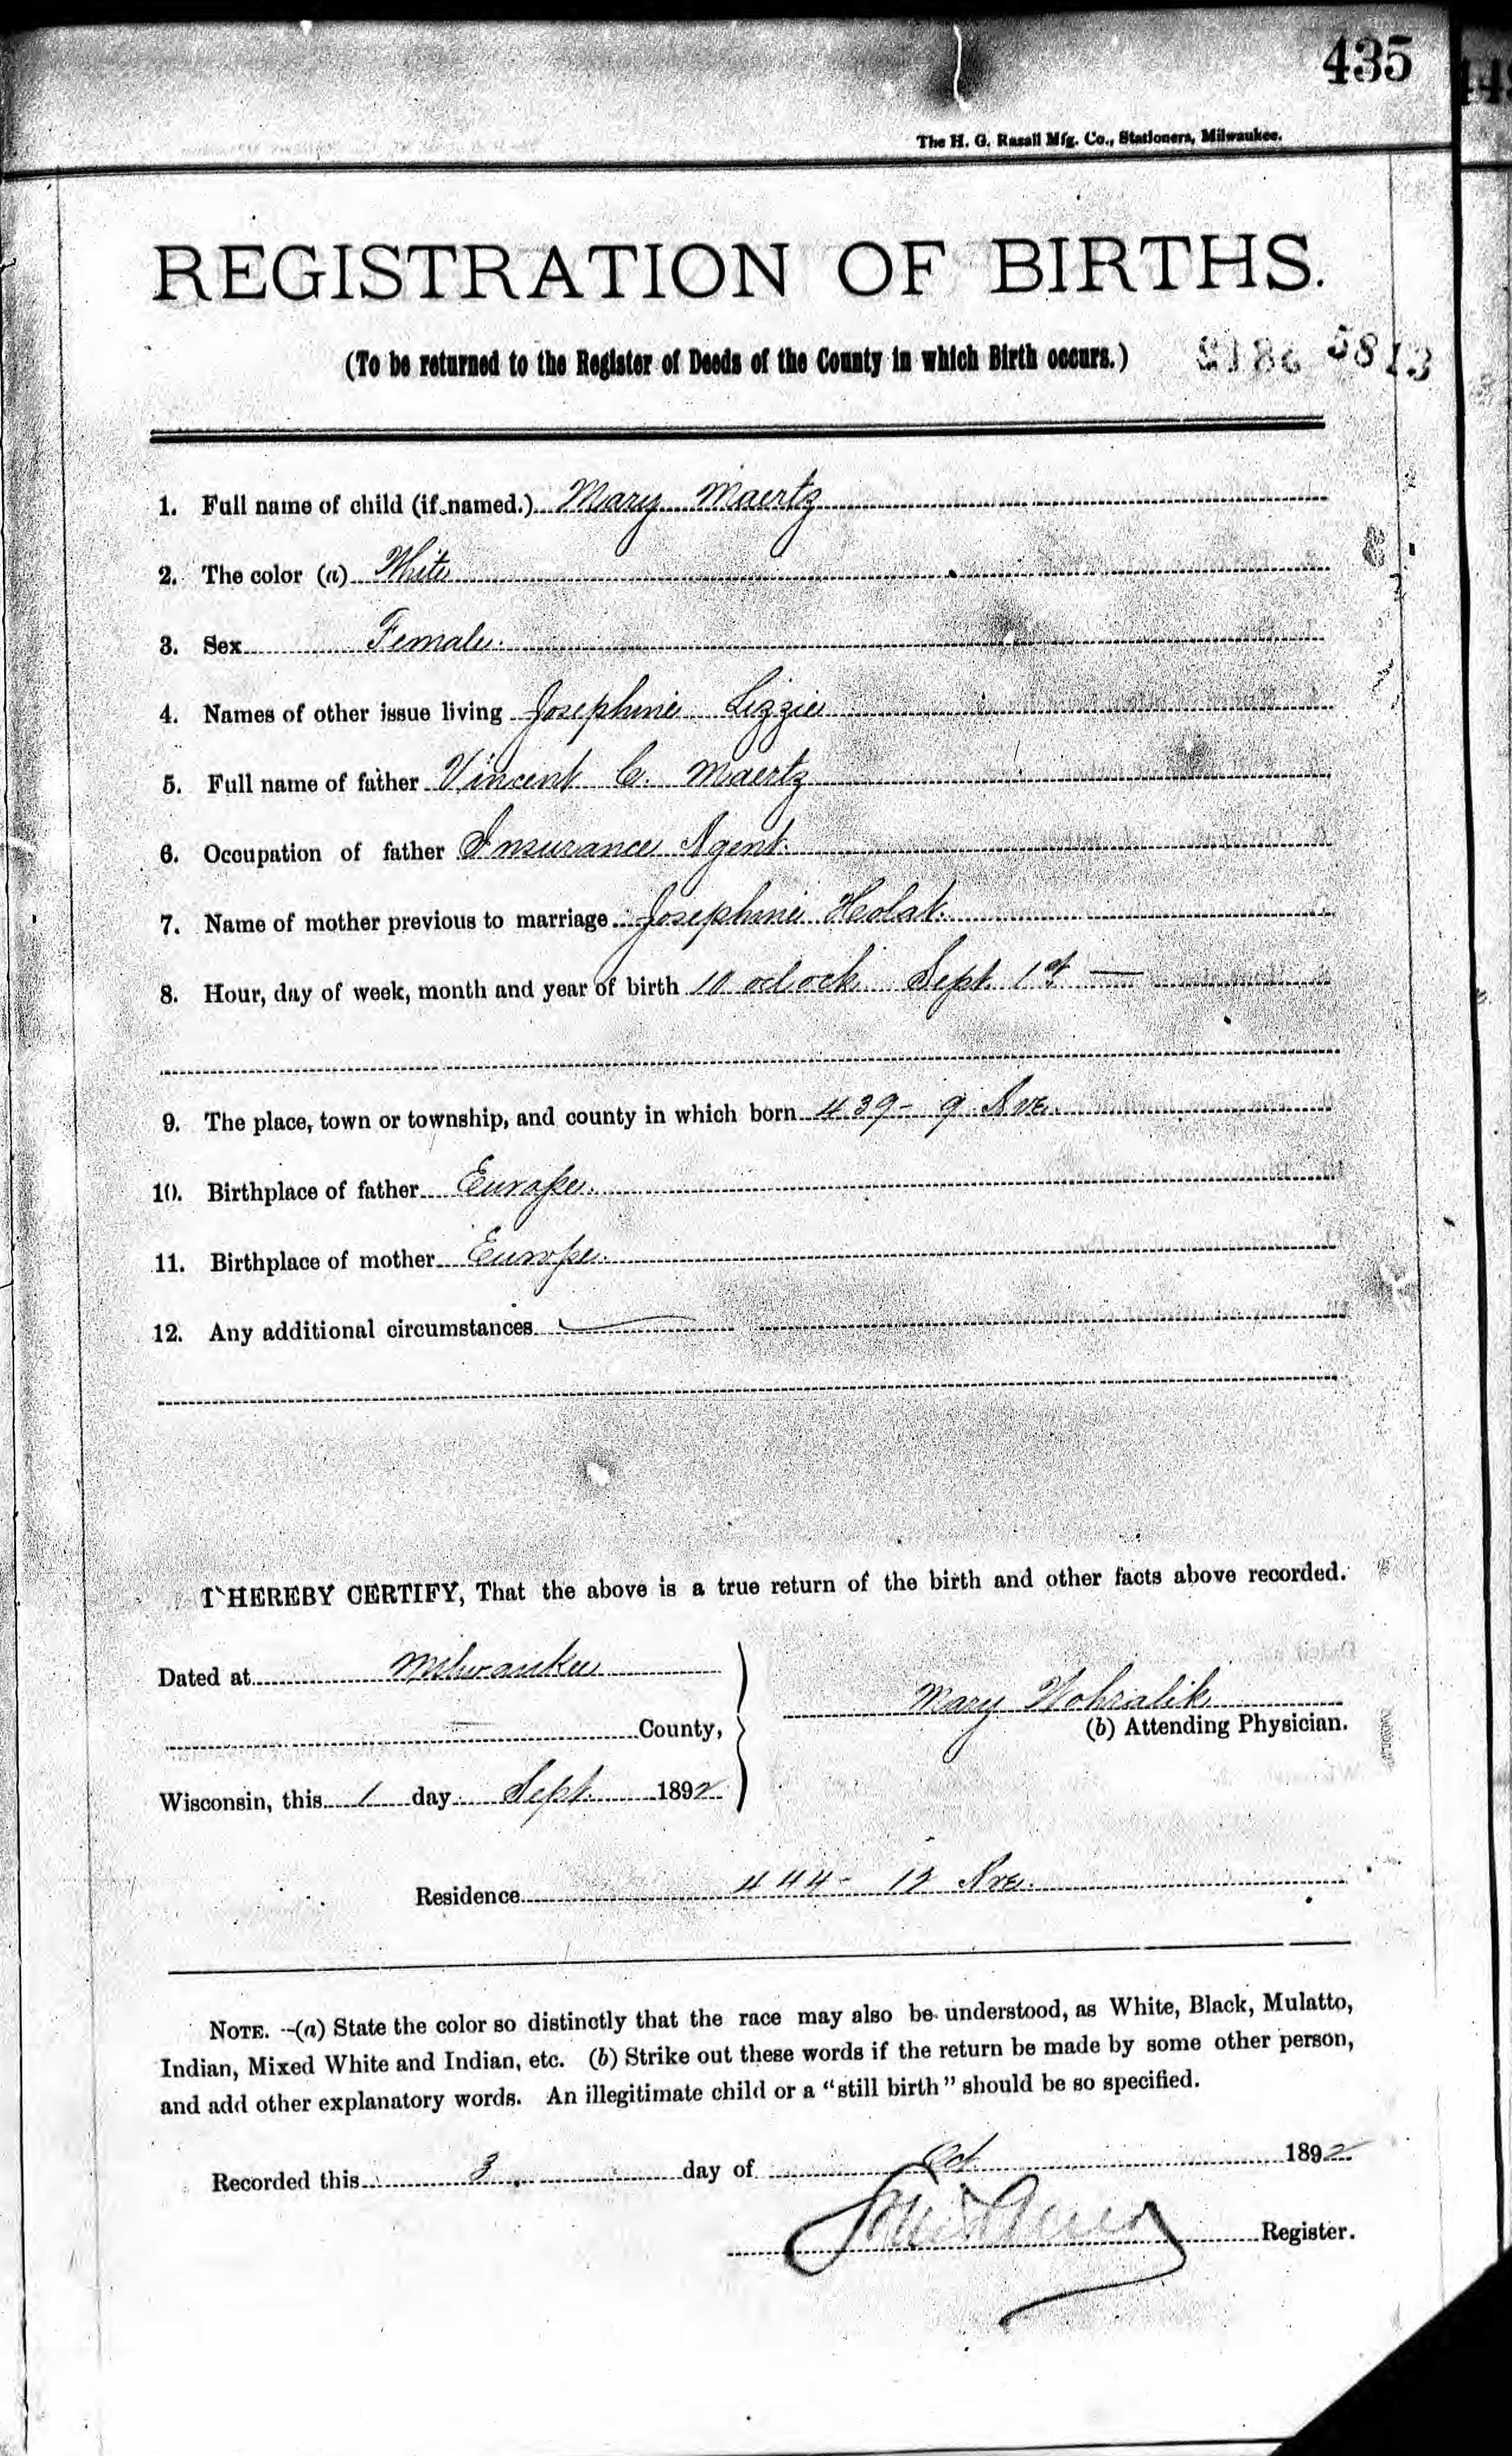 435
The H. G. Razall Mfg. Co., Stationers, Milwaukee.
REGISTRATION OF BIRTHS.
(To be returned to the Register of Deeds of the County in which Birth occurs.) 5813
1. Full name of child (if named.) Mary Maertz
2. The color (a) White
3. Sex Female.
4. Names of other issue living Josephine Lizzie
5. Full name of father Vincent C. Maertz
6. Occupation of father Insurance Agent.
7. Name of mother previous to marriage Josephine Holak.
8. Hour, day of week, month and year of birth 10 oclock Sept. 1st —
9. The place, town or township, and county in which born 439 - 9 Ave.
10. Birthplace of father Europe.
11. Birthplace of mother Europe.
12. Any additional circumstances
I HEREBY CERTIFY, That the above is a true return of the birth and other facts above recorded.
Dated at Milwaukee
County,
Wisconsin, this 1 day Sept. 1892
Mary
(b) Attending Physician.
Residence 444 - 12 Ave.
NOTE. -(a) State the color so distinctly that the race may also be understood, as White, Black, Mulatto,
Indian, Mixed White and Indian, etc. (b) Strike out these words if the return be made by some other person,
and add other explanatory words. An illegitimate child or a "still birth" should be so specified.
Recorded this 3 day of Oct 1892
Register.